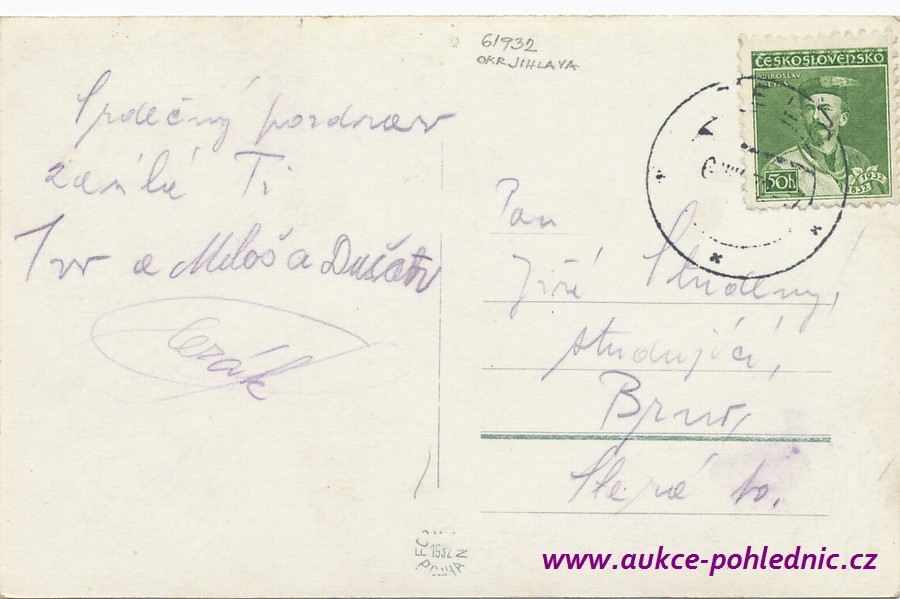 61932
OKR JIHLAVA
Srdečný pozdrav
zasílá Ti
a Miloš a Dušan
ČESKOSLOVENSKO
MIROSLAV
TYRŠ
50h
1832 1932
Pan
Jiří Studený,
studující,
Brno,
PRAHA
www.aukce-pohlednic.cz